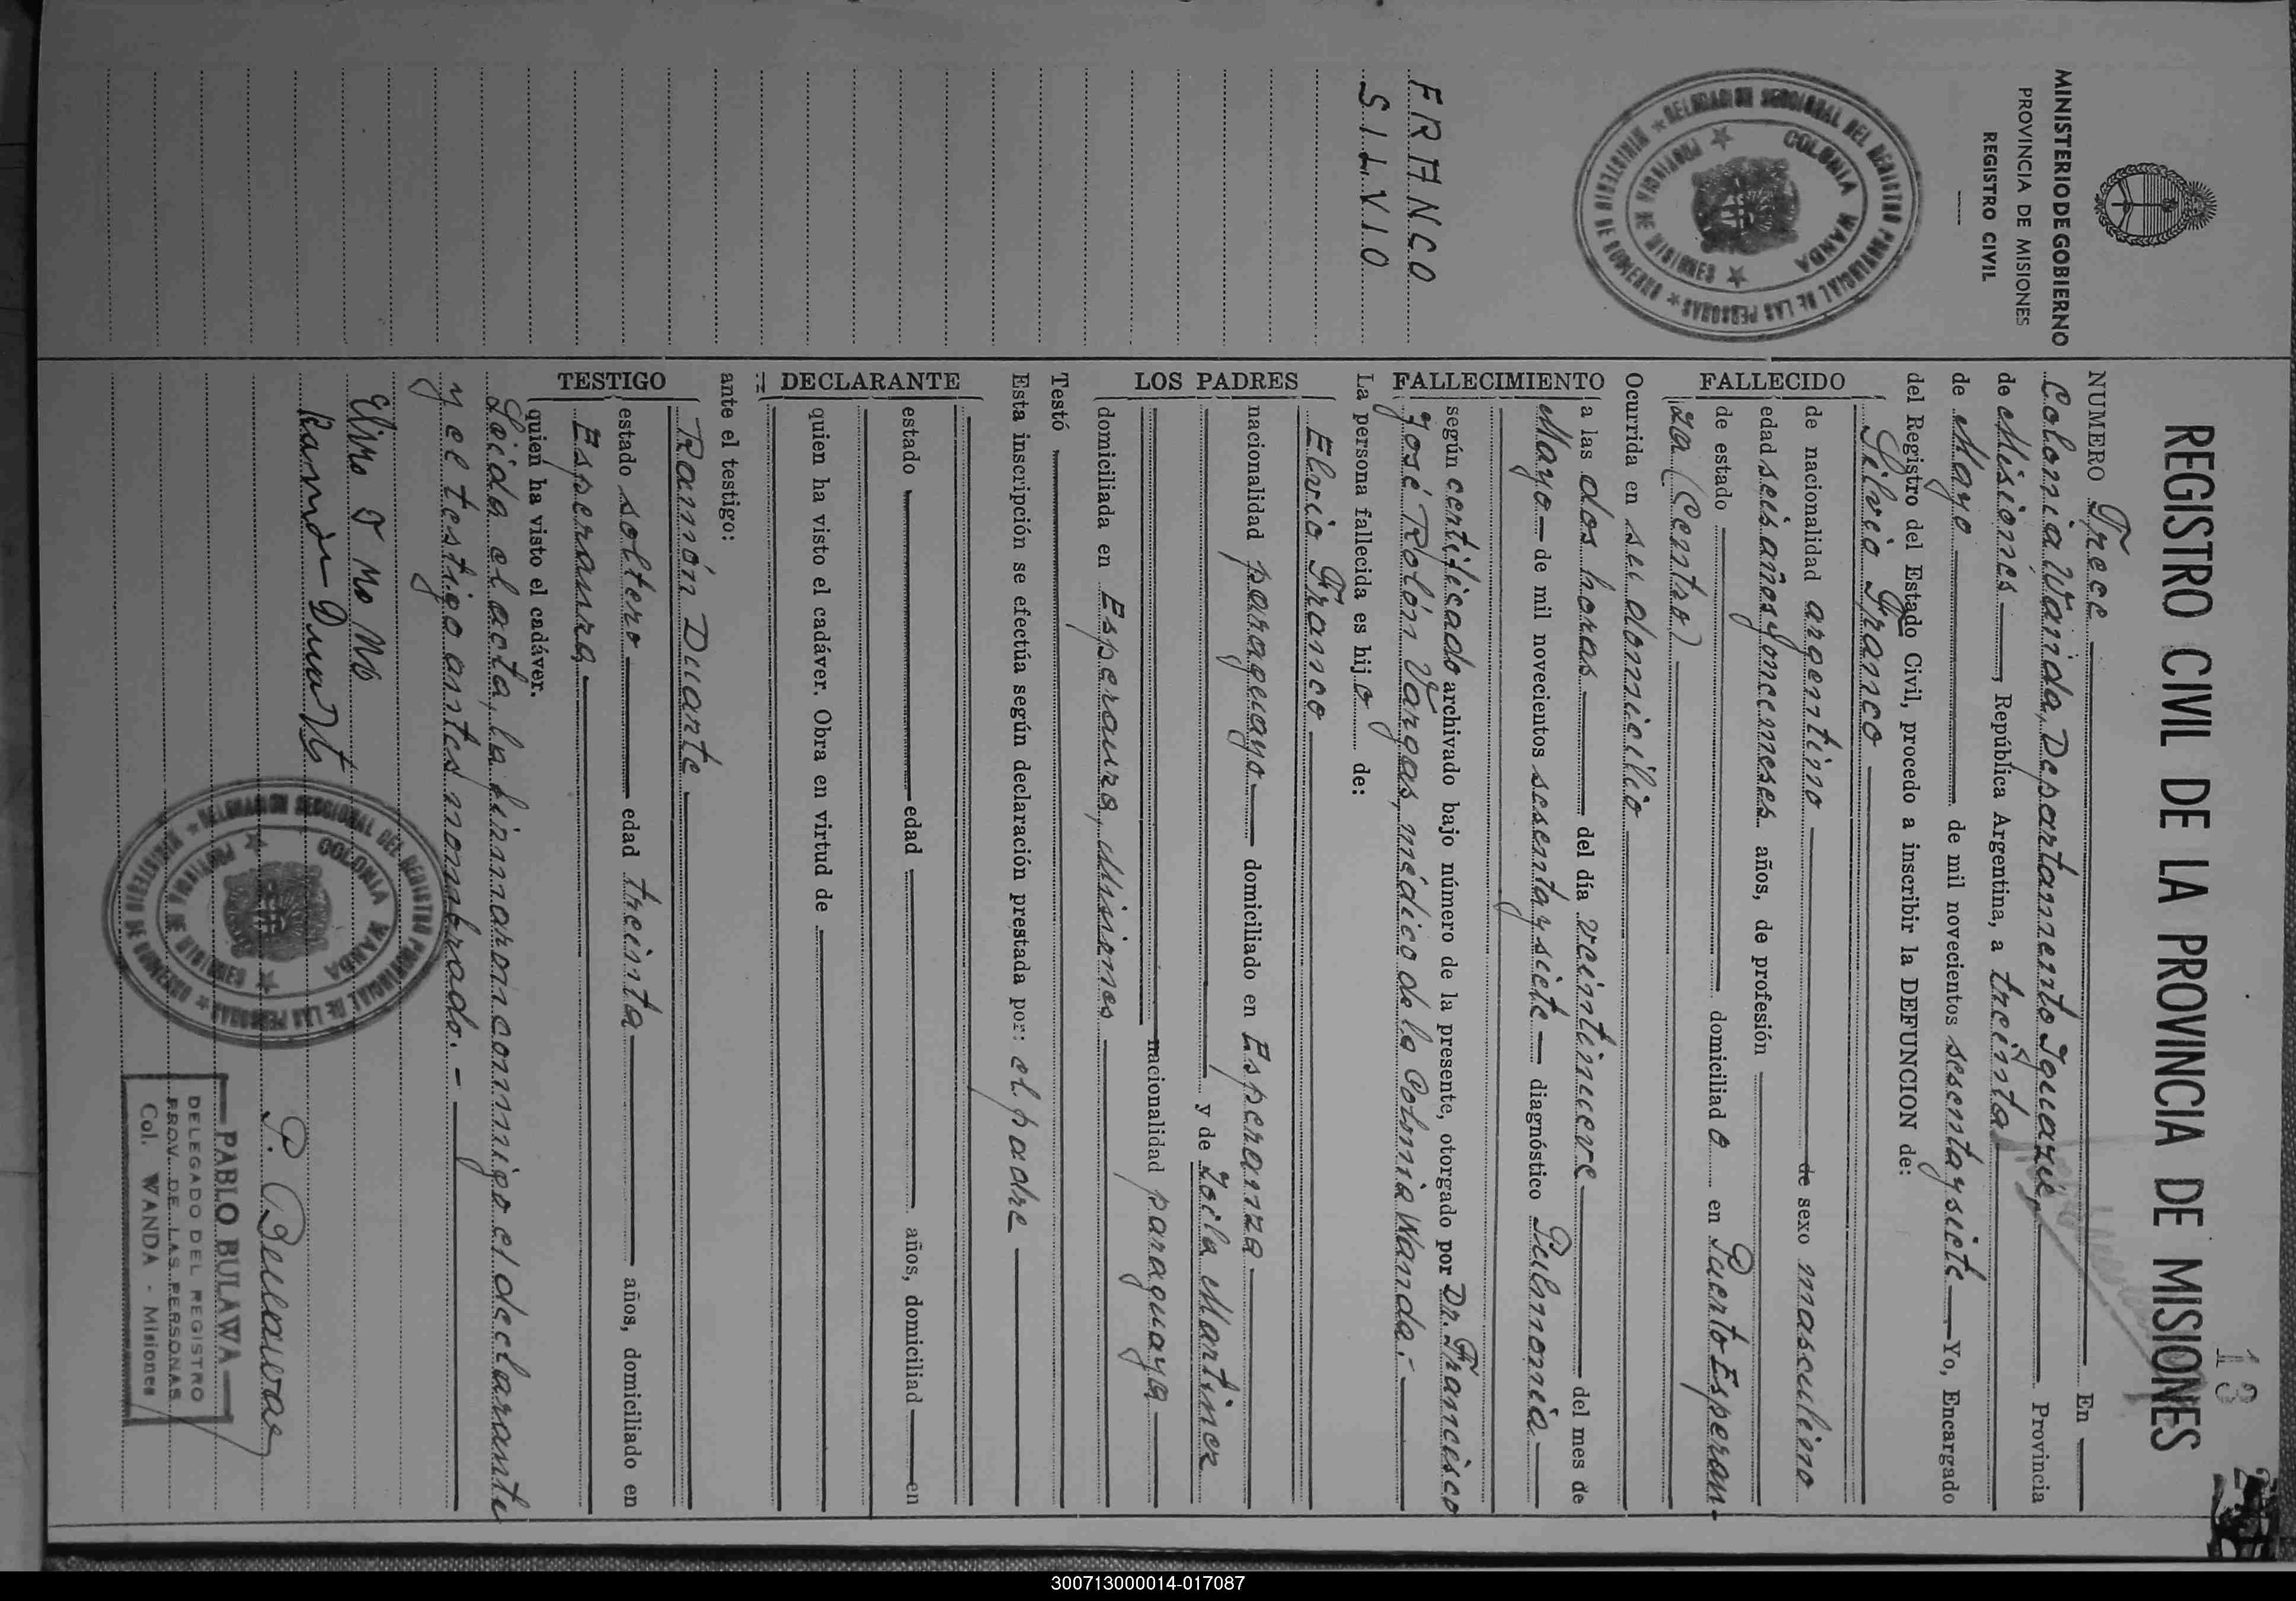 13
MINISTERIO DE GOBIERNO
PROVINCIA DE MISIONES
REGISTRO CIVIL
DELEGACION SECCIONAL DEL REGISTRO PROVINCIAL DE LAS PERSONAS
MINISTERIO DE GOBIERNO
COLONIA WANDA
PROVINCIA DE MISIONES
FRANCO
SILVIO
REGISTRO CIVIL DE LA PROVINCIA DE MISIONES
NUMERO Trece En
Colonia Wanda, Departamento Iguazú, Provincia
de Misiones, República Argentina, a treinta
de Mayo de mil novecientos sesenta y siete Yo, Encargado
del Registro del Estado Civil, procedo a inscribir la DEFUNCION de:
FALLECIDO
Silvio Franco
de nacionalidad argentino de sexo masculino
edad seis años y once meses años, de profesión
de estado domiciliado en Puerto Esperan-
za (Centro)
Ocurrida en su domicilio
FALLECIMIENTO
a las dos horas del día veintinueve del mes de
Mayo de mil novecientos sesenta y siete diagnóstico Pulmonia
según certificado archivado bajo número de la presente, otorgado por Dr. Francisco
José Rolón Vargas, médico de la Colonia Wanda.-
La persona fallecida es hijo de:
LOS PADRES
Elvio Franco
nacionalidad paraguayo domiciliado en Esperanza
y de Zoila Martinez
nacionalidad paraguaya
domiciliada en Esperanza, Misiones
Testó
Esta inscripción se efectúa según declaración prestada por: el padre
DECLARANTE
estado edad años, domiciliad en
quien ha visto el cadáver. Obra en virtud de
ante el testigo:
TESTIGO
Ramón Duarte
estado soltero edad treinta años, domiciliado en
Esperanza
quien ha visto el cadáver.
Leida el acta, la firmaron conmigo el declarante
y el testigo antes nombrado.-
Ramón Duarte
DELEGACION SECCIONAL DEL REGISTRO PROVINCIAL DE LAS PERSONAS
MINISTERIO DE GOBIERNO
COLONIA WANDA
PROVINCIA DE MISIONES
P. Bulawa
PABLO BULAWA
DELEGADO DEL REGISTRO
PROV. DE LAS PERSONAS
Col. WANDA - Misiones
300713000014-017087